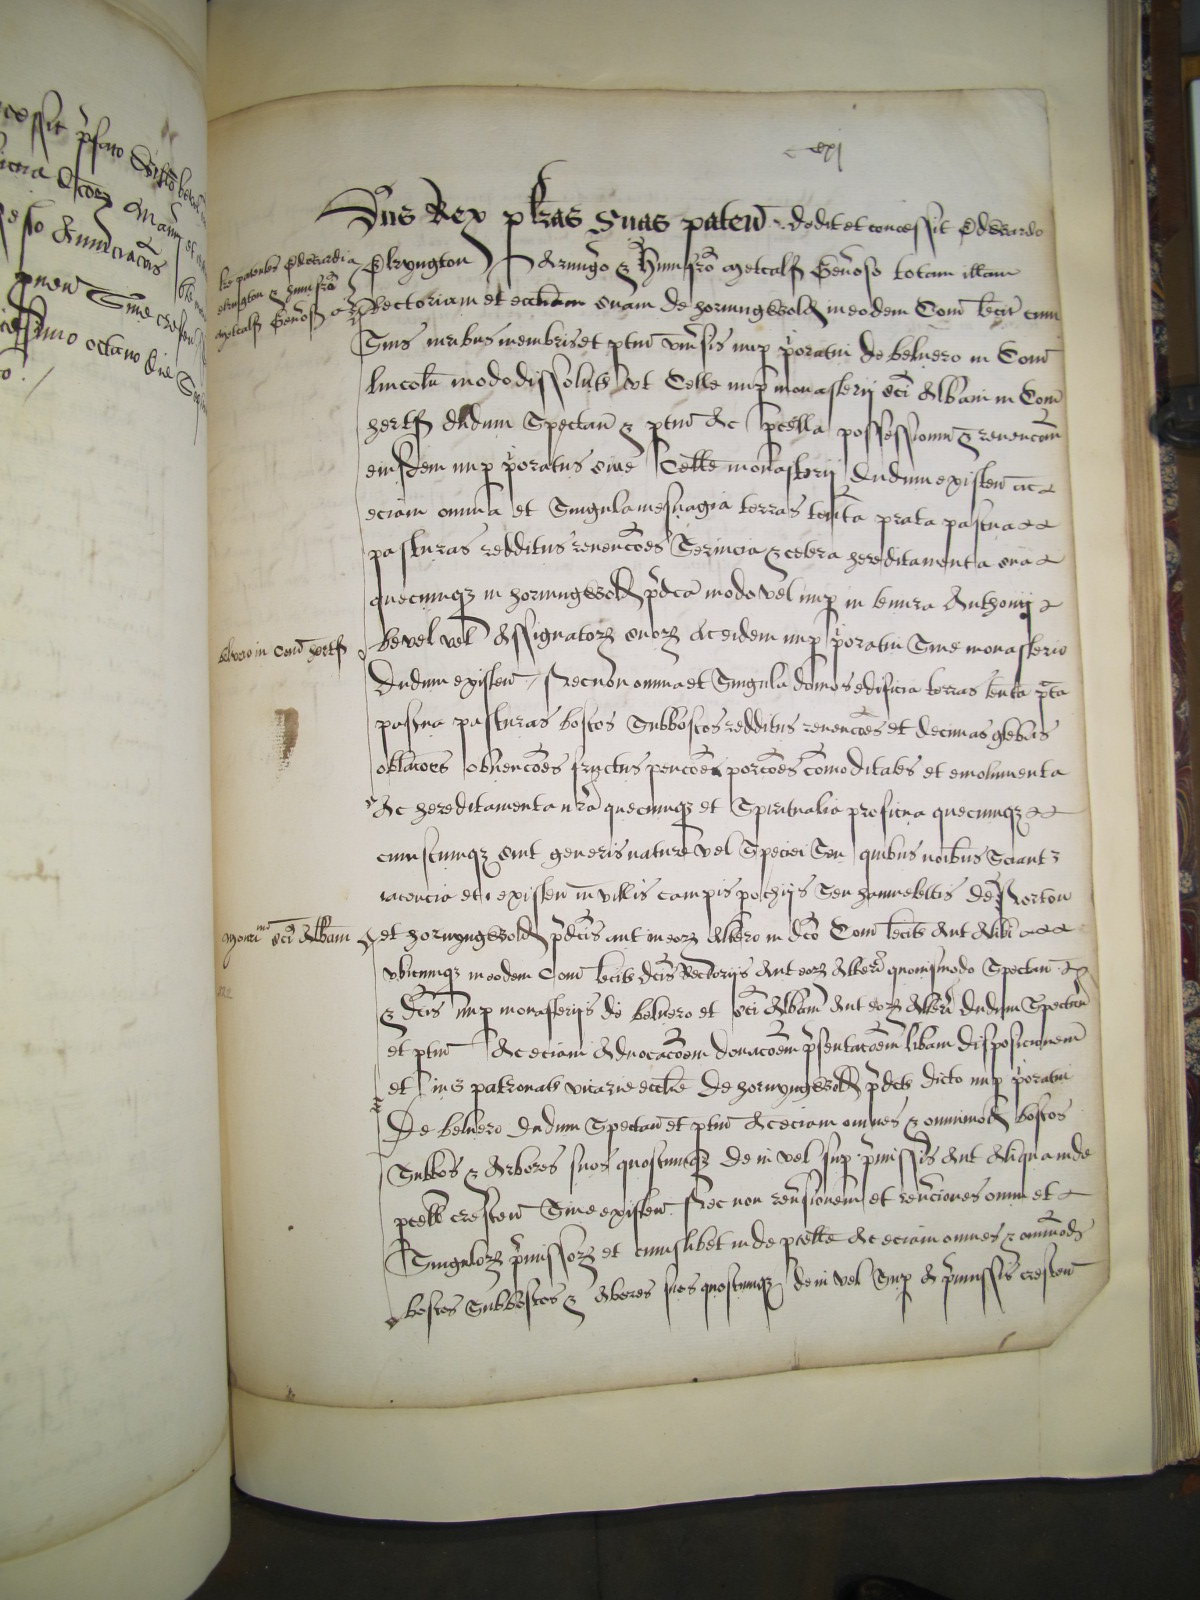 cxj
Dns Rex p lras suas paten dedit et concessit Edwardo
Elryngton Armigo & Humfro Metcalf Genoso totam illam
Rectoriam et eccliam suam de Hornyngwold in eodem Com Lecit cum
Suis iuribus membris et ptin vniusis nup prioratui de beluero in Com
lincoln modo dissolut vt Celle nup monasterij sci Albani in Com
hertf dudum Spectan & ptin Ac pcella possessionu & reuencon
eiusdem nup prioratus siue Celle monasterij dudum existen ac
eciam omnia et Singula mesuagia terras tenta prata pascua
pasturas redditus reuencoes Seruicia & cetera hereditamenta sua
quecumqz in hornyngwold pdca modo vel nup in tenura Anthonij
bevel vel Assignatorz suorz ac eidem nup prioratui Siue monasterio
Dudum existen / Necnon omnia et Singula domos edificia terras tenta pta
pascua pasturas boscos Subboscos redditus reuencoes et decimas glebas
oblacoes obuencoes fructus pencoes porcoes comoditates et emolumenta
Ac hereditamenta nra quecumqz et Spiritualia proficua quecumqz
cuiuscumqz sint generis nature vel Speciei Seu quibus noibus Sciant
iacencia et existen in villis campis pochijs Seu hamelettis de Norton
et hornyngwold pdcis aut in eorz Altero in dco Com lecit Aut Alibi
vbicumqz in eodem Com lecit dcis Rectorijs Aut eorz Alteri quouismodo Spectan
& dcis nup monasterijs de beluero et sci Albani Aut eorz Alteri dudum Spectan
et ptin Ac eciam Aduocacoem donacoem psentacoem libam disposicionem
et ius patronats vicarie ecclie de hornyngwold pdct dicto nup prioratui
De beluero dudum Spectan et ptin Ac eciam omnes & omnimod boscos
Subbos & Arbores suos quoscumqz de in vel sup pmissis Aut Aliqua inde
pcella crescen Siue existen Nec non reusionem et reuciones omn et
Singulorz pmissorz et cuiuslibet inde pcelle Ac eciam omnes & omnimod
boscos Subboscos & Arbores suos quoscumqz de in vel Sup pmissis crescen
lre patentes Edwardi
elrington & humfro
Metcalf Genoso
belvero in Com hertf
Mon sci Albani